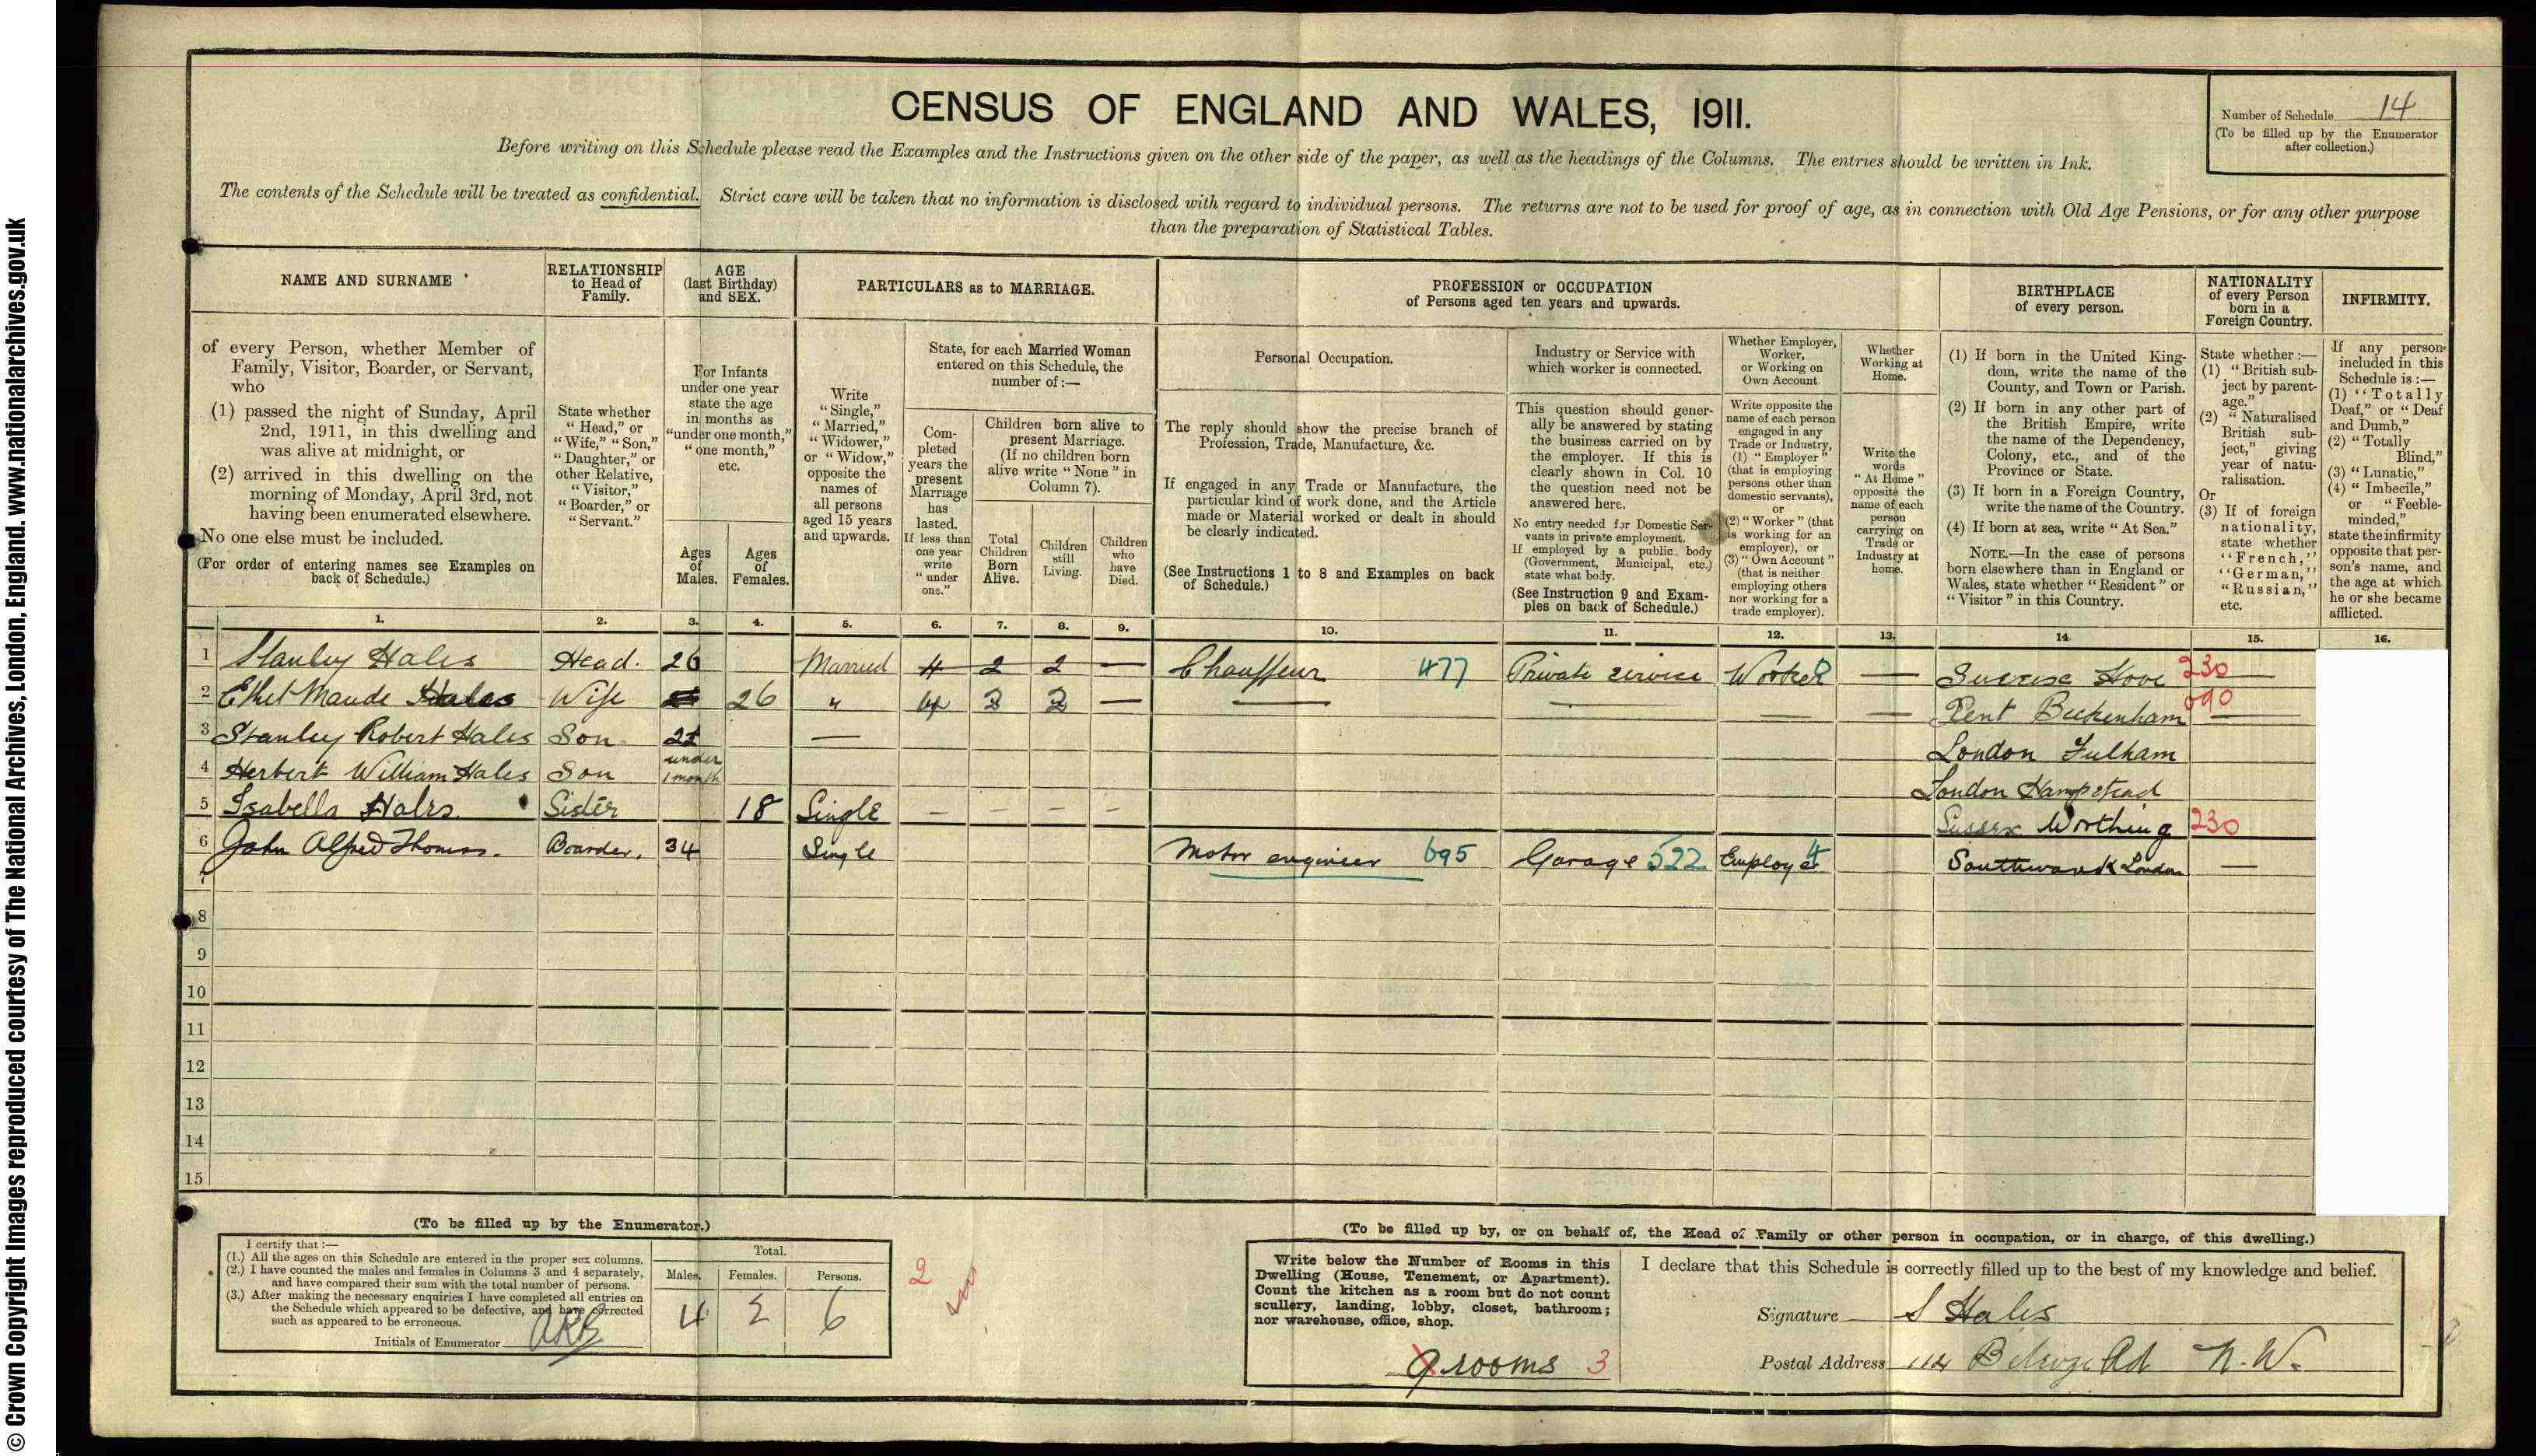 © Crown Copyright Images reproduced courtesy of The National Archives, London, England. www.nationalarchives.gov.uk
CENSUS OF ENGLAND AND WALES, 1911.
Number of Schedule 14
(To be filled up by the Enumerator
after collection.)
Before writing on this Schedule please read the Examples and the Instructions given on the other side of the paper, as well as the headings of the Columns. The entries should be written in Ink.
The contents of the Schedule will be treated as confidential. Strict care will be taken that no information is disclosed with regard to individual persons. The returns are not to be used for proof of age, as in connection with Old Age Pensions, or for any other purpose
than the preparation of Statistical Tables.
NAME AND SURNAME
of every Person, whether Member of
Family, Visitor, Boarder, or Servant,
who
(1) passed the night of Sunday, April
2nd, 1911, in this dwelling and
was alive at midnight, or
(2) arrived in this dwelling on the
morning of Monday, April 3rd, not
having been enumerated elsewhere.
No one else must be included.
(For order of entering names see Examples on
back of Schedule.)
RELATIONSHIP
to Head of
Family.
State whether
"Head," or
"Wife," "Son,"
"Daughter," or
other Relative,
"Visitor,"
"Boarder," or
"Servant."
AGE
(last Birthday)
and SEX.
For Infants
under one year
state the age
in months as
"under one month,"
"one month,"
etc.
Ages
of
Males.
Ages
of
Females.
PARTICULARS as to MARRIAGE.
Write
"Single,"
"Married,"
"Widower,"
or "Widow,"
opposite the
names of
all persons
aged 15 years
and upwards.
State, for each Married Woman
entered on this Schedule, the
number of:—
Com-
pleted
years the
present
Marriage
has
lasted.
If less than
one year
write
"under
one."
Children born alive to
present Marriage.
(If no children born
alive write "None" in
Column 7).
Total
Children
Born
Alive.
Children
still
Living.
Children
who
have
Died.
PROFESSION or OCCUPATION
of Persons aged ten years and upwards.
Personal Occupation.
The reply should show the precise branch of
Profession, Trade, Manufacture, &c.
If engaged in any Trade or Manufacture, the
particular kind of work done, and the Article
made or Material worked or dealt in should
be clearly indicated.
(See Instructions 1 to 8 and Examples on back
of Schedule.)
Industry or Service with
which worker is connected.
This question should gener-
ally be answered by stating
the business carried on by
the employer. If this is
clearly shown in Col. 10
the question need not be
answered here.
No entry needed for Domestic Ser-
vants in private employment.
If employed by a public body
(Government, Municipal, etc.)
state what body.
(See Instruction 9 and Exam-
ples on back of Schedule.)
Whether Employer,
Worker,
or Working on
Own Account.
Write opposite the
name of each person
engaged in any
Trade or Industry,
(1) "Employer"
(that is employing
persons other than
domestic servants),
or
(2) "Worker" (that
is working for an
employer), or
(3) "Own Account"
(that is neither
employing others
nor working for a
trade employer).
Whether
Working at
Home.
Write the
words
"At Home"
opposite the
name of each
person
carrying on
Trade or
Industry at
home.
BIRTHPLACE
of every person.
(1) If born in the United King-
dom, write the name of the
County, and Town or Parish.
(2) If born in any other part of
the British Empire, write
the name of the Dependency,
Colony, etc., and of the
Province or State.
(3) If born in a Foreign Country,
write the name of the Country.
(4) If born at sea, write "At Sea."
NOTE.—In the case of persons
born elsewhere than in England or
Wales, state whether "Resident" or
"Visitor" in this Country.
NATIONALITY
of every Person
born in a
Foreign Country.
State whether:—
(1) "British sub-
ject by parent-
age."
(2) "Naturalised
British sub-
ject," giving
year of natu-
ralisation.
Or
(3) If of foreign
nationality,
state whether
"French,"
"German,"
"Russian,"
etc.
INFIRMITY.
If any person
included in this
Schedule is:—
(1) "Totally
Deaf," or "Deaf
and Dumb,"
(2) "Totally
Blind,"
(3) "Lunatic,"
(4) "Imbecile,"
or "Feeble-
minded,"
state the infirmity
opposite that per-
son's name, and
the age at which
he or she became
afflicted.
1. 2. 3. 4. 5. 6. 7. 8. 9. 10. 11. 12. 13. 14. 15. 16.
1 Stanley Hales Head. 26 Married 4 2 2 — Chauffeur 477 Private service Worker — Sussex Hove 230 —
2 Ethel Maude Hales Wife 26 " 4 2 2 — — — — — Kent Beckenham 090 —
3 Stanley Robert Hales Son — London Fulham
4 Herbert William Hales Son under 1 month London Hampstead
5 Isabella Hales. Sister 18 Single — — — — Sussex Worthing 230
6 John Alfred Thomas. Boarder. 34 Single Motor engineer 695 Garage 522 Employer 4 Southwark London —
7
8
9
10
11
12
13
14
15
(To be filled up by the Enumerator.)
I certify that:—
(1.) All the ages on this Schedule are entered in the proper sex columns.
(2.) I have counted the males and females in Columns 3 and 4 separately,
and have compared their sum with the total number of persons.
(3.) After making the necessary enquiries I have completed all entries on
the Schedule which appeared to be defective, and have corrected
such as appeared to be erroneous.
Initials of Enumerator ARB
Total.
Males. Females. Persons.
4 2 6
2
(To be filled up by, or on behalf of, the Head of Family or other person in occupation, or in charge, of this dwelling.)
Write below the Number of Rooms in this
Dwelling (House, Tenement, or Apartment).
Count the kitchen as a room but do not count
scullery, landing, lobby, closet, bathroom;
nor warehouse, office, shop.
9 rooms 3
I declare that this Schedule is correctly filled up to the best of my knowledge and belief.
Signature S Hales
Postal Address 112 Belsize Rd N.W.